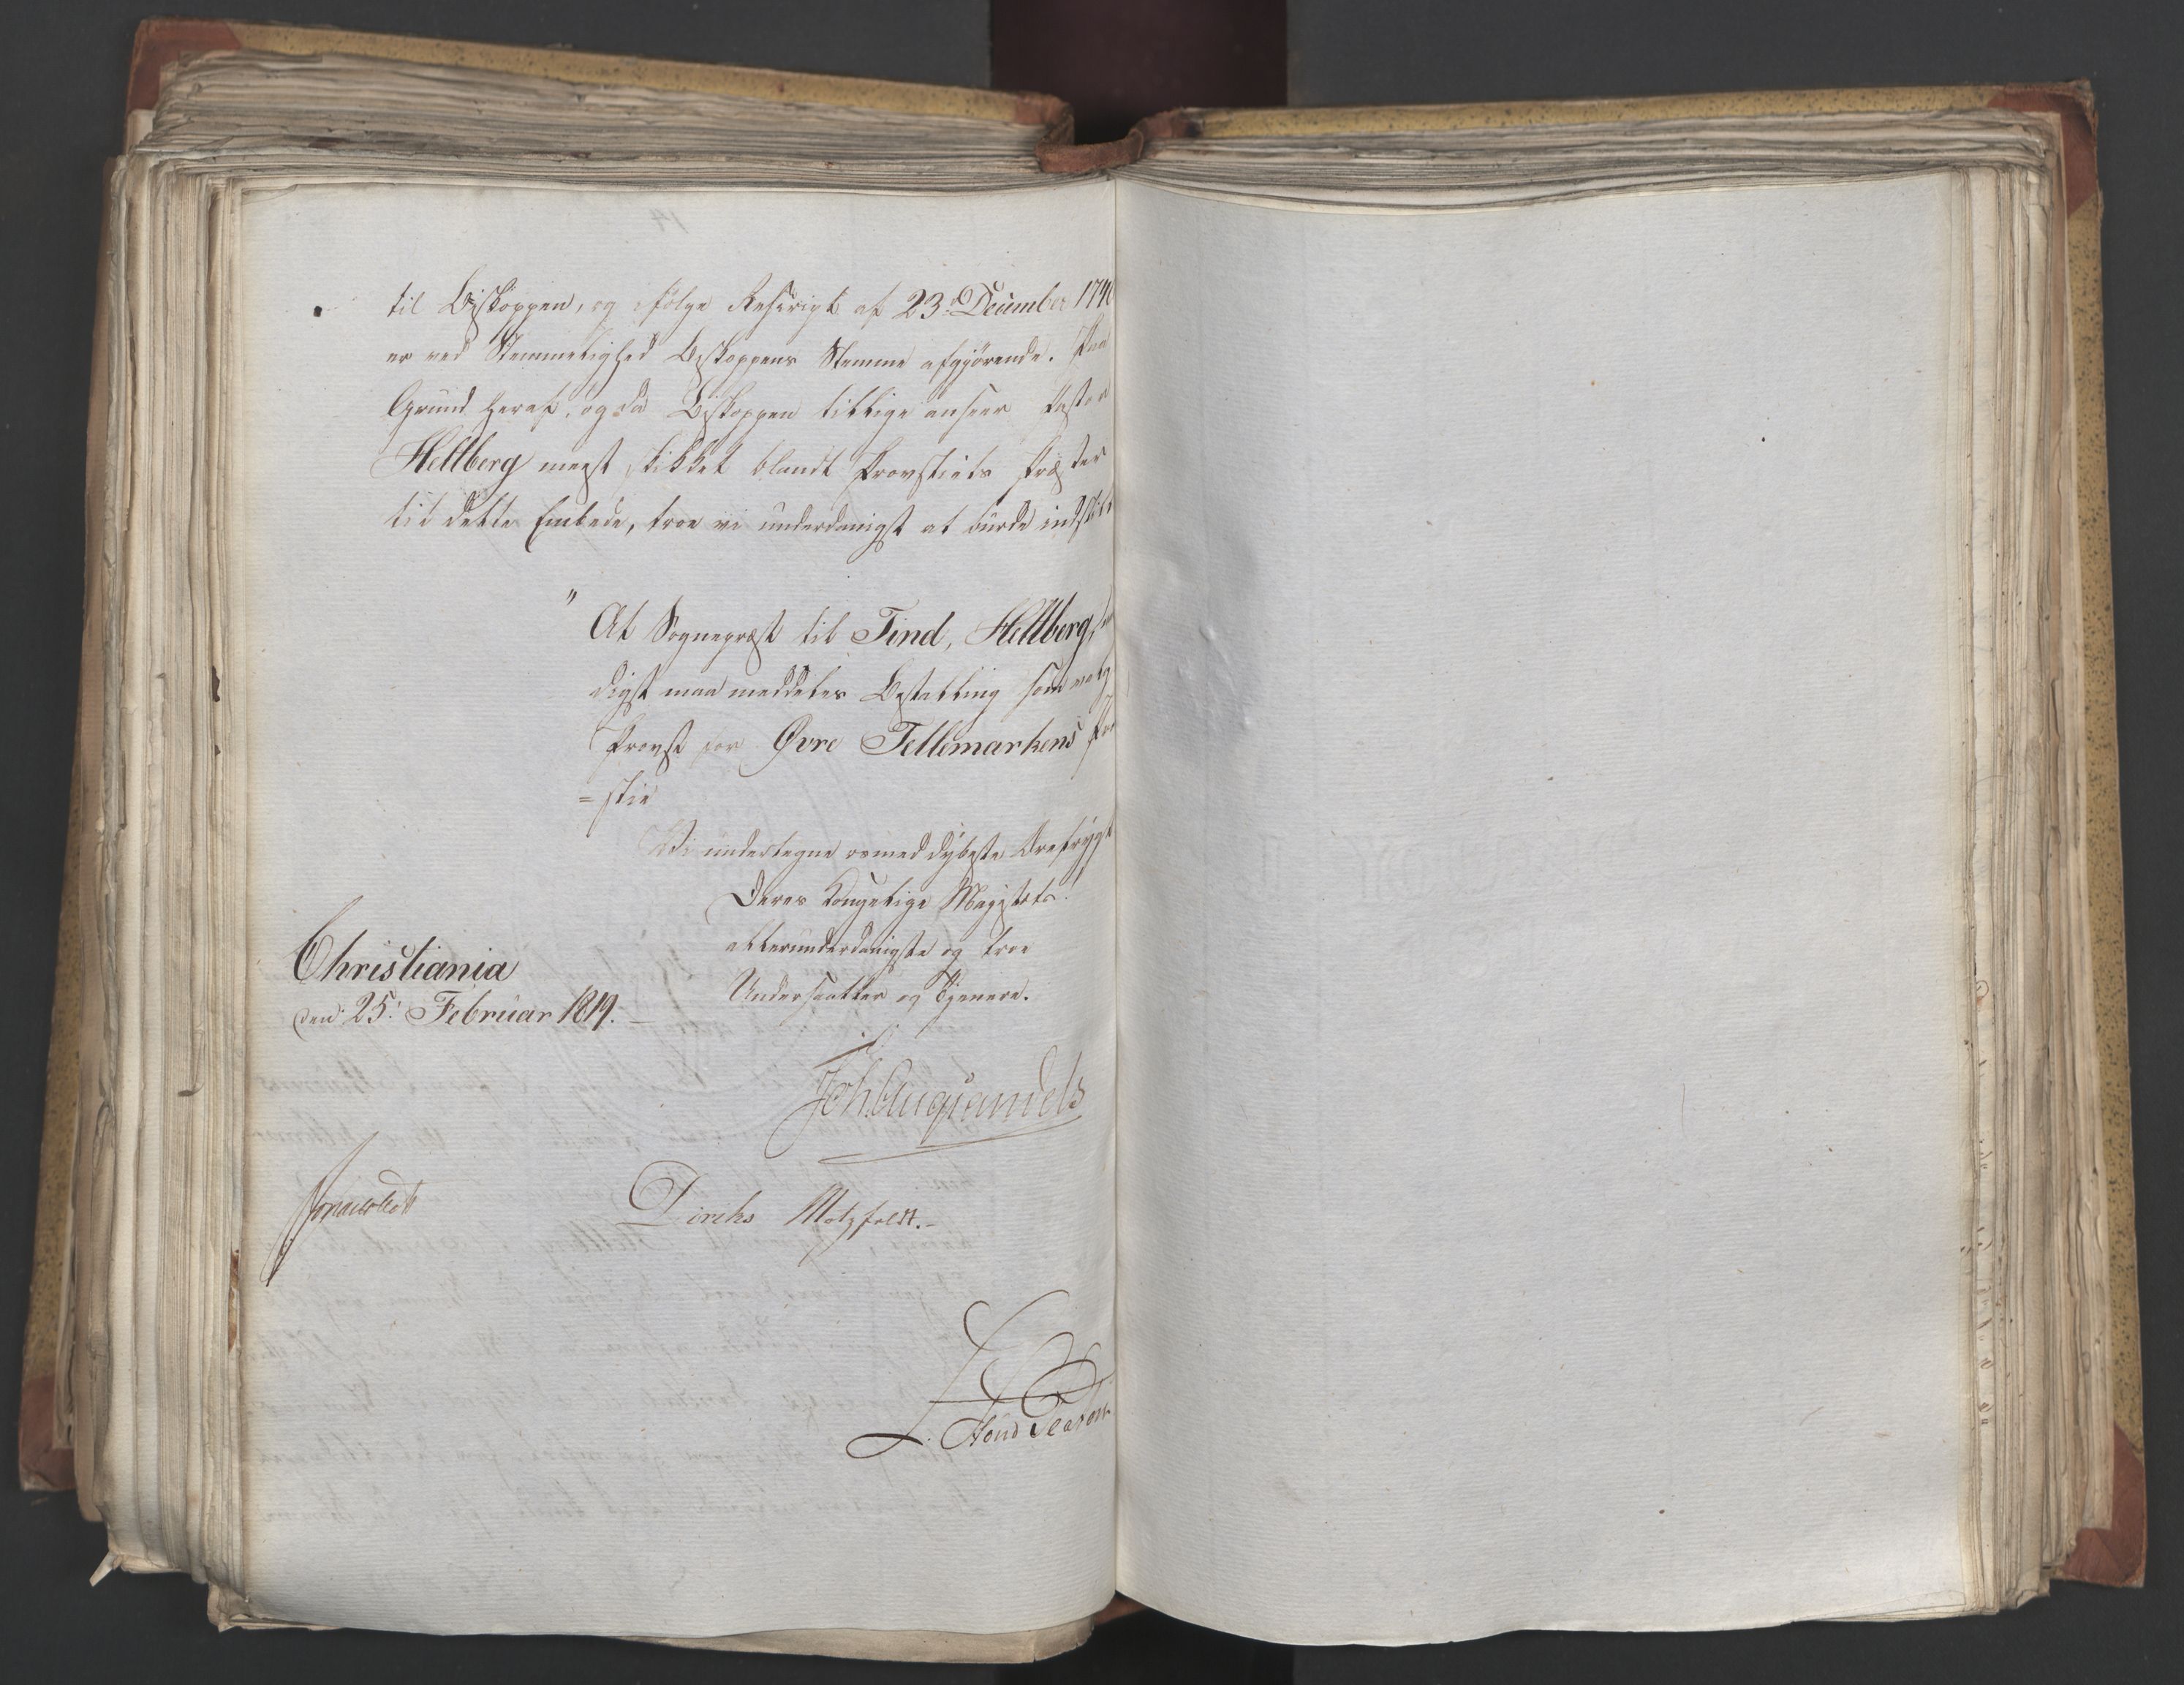 til Biskoppen, og ifølge Rescript af 23d December 174
er ved Stemmelighed Biskoppens Stemme afgjørende. Paa
Grund heraf, og da Biskoppen tillige anseer Pastor
Hellberg meest skikket blandt Provstiets Præster
til dette Embede, troe vi underdanigst at burde indstille
" At Sognepræst til Tind, Hellberg,
digst maa meddeles Bestalling som
Provst for Øvre Tellemarkens
= stie
Vi undertegne os med dybeste Ærefrygt
Deres Kongelige Majestets
allerunderdanigste og troe
Undersaatter og Tjenere.
Christiania
den 25: Februar 1819.
Joh Aug Sandels
Jonas Collett
Diriks Motzfeldt.